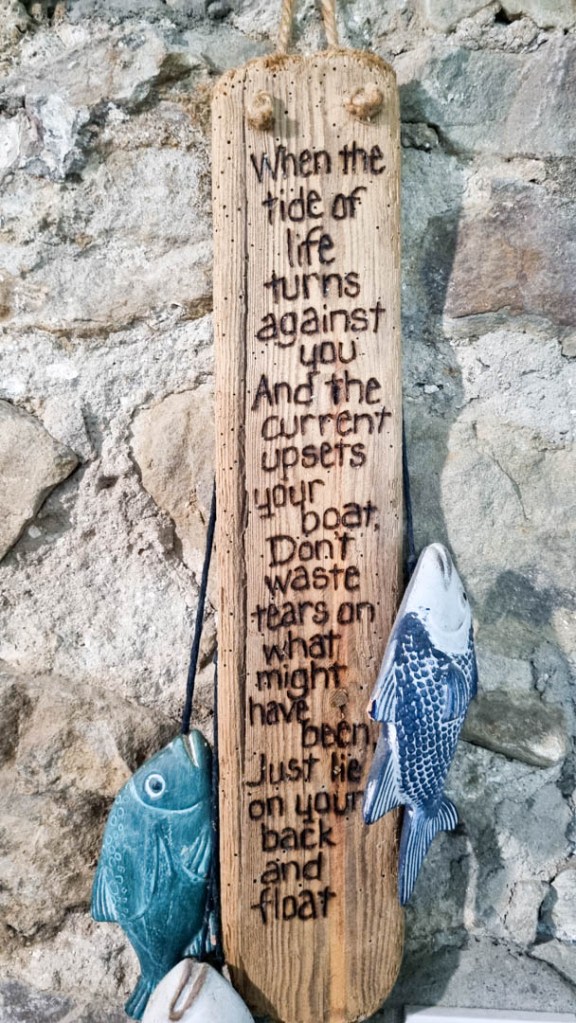 When the
tide of
life
turns
against
you
And the
current
upsets
your
boat,
Don't
waste
tears on
what
might
have
been,
Just lie
on your
back
and
float